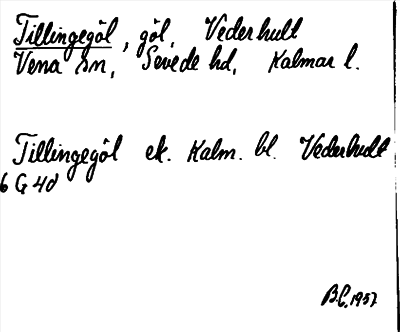 Tillingegöl, göl, Vederhult
Vena sn, Sevede hd, Kalmar l.
Tillingegöl ek. Kalm. bl. Vederhult
6 G 4d
B.C. 1957